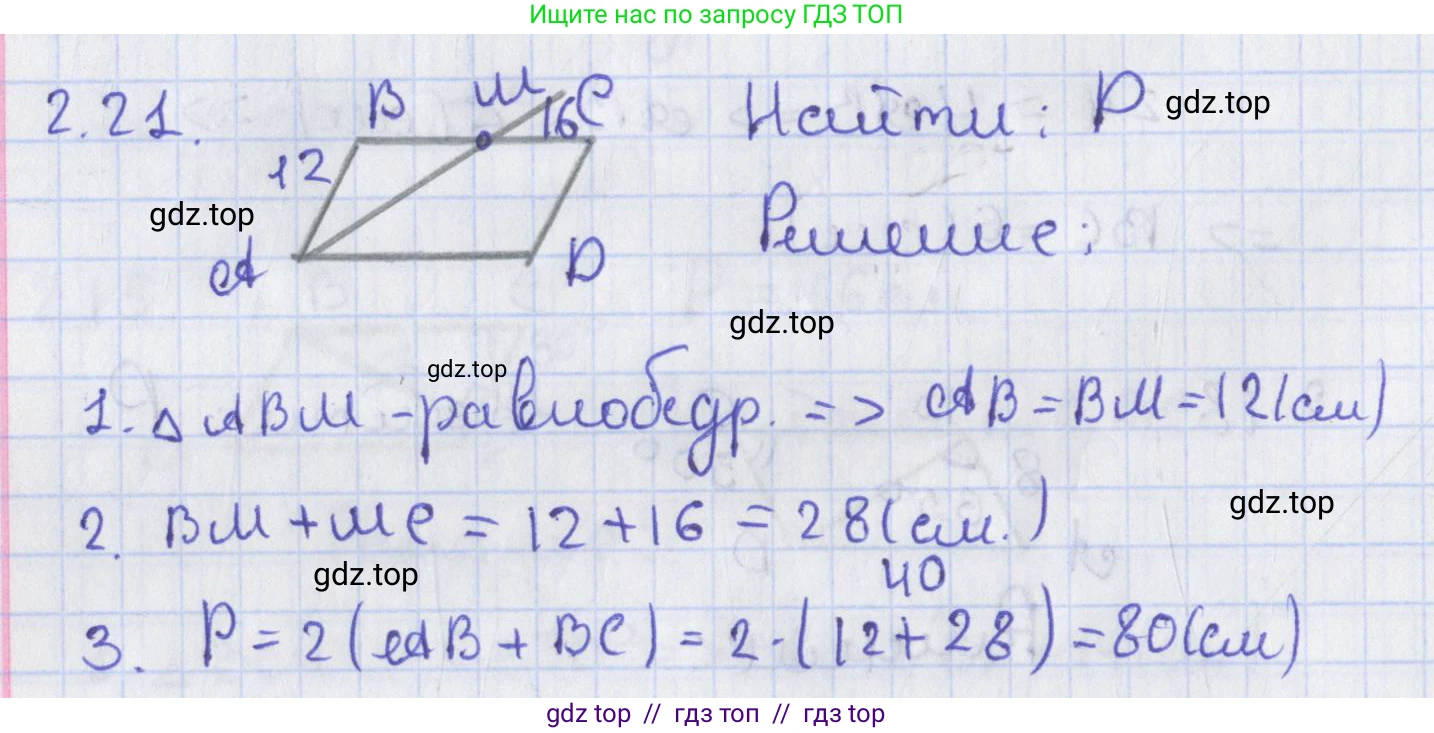 Ищите нас по запросу ГДЗ ТОП
2.21.
B M C
16
12
A D
Найти: P
gdz.top
gdz.top
Решение:
gdz.top
gdz.top
1. △ ABM - равнобедр. => AB = BM = 12 (см)
gdz.top
2. BM + MC = 12 + 16 = 28 (см.)
gdz.top
40
3. P = 2 (AB + BC) = 2 · (12 + 28) = 80 (см)
gdz top // гдз топ // гдз top